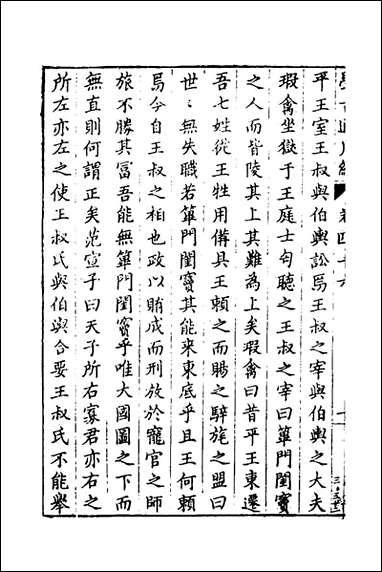 卷四十六
平王室王叔與伯輿訟焉王叔之宰與伯輿之大夫
瑕禽坐獄于王庭士匄聽之王叔之宰曰篳門閨竇
之人而皆陵其上其難為上矣瑕禽曰昔平王東遷
吾七姓從王牲用備具王賴之而賜之騂旄之盟曰
世世無失職若篳門閨竇其能來東底乎且王何賴
焉今自王叔之相也政以賄成而刑放於寵官之師
旅不勝其富吾能無篳門閨竇乎唯大國圖之下而
無直則何謂正矣范宣子曰天子所右寡君亦右之
所左亦左之使王叔氏與伯輿合要王叔氏不能舉